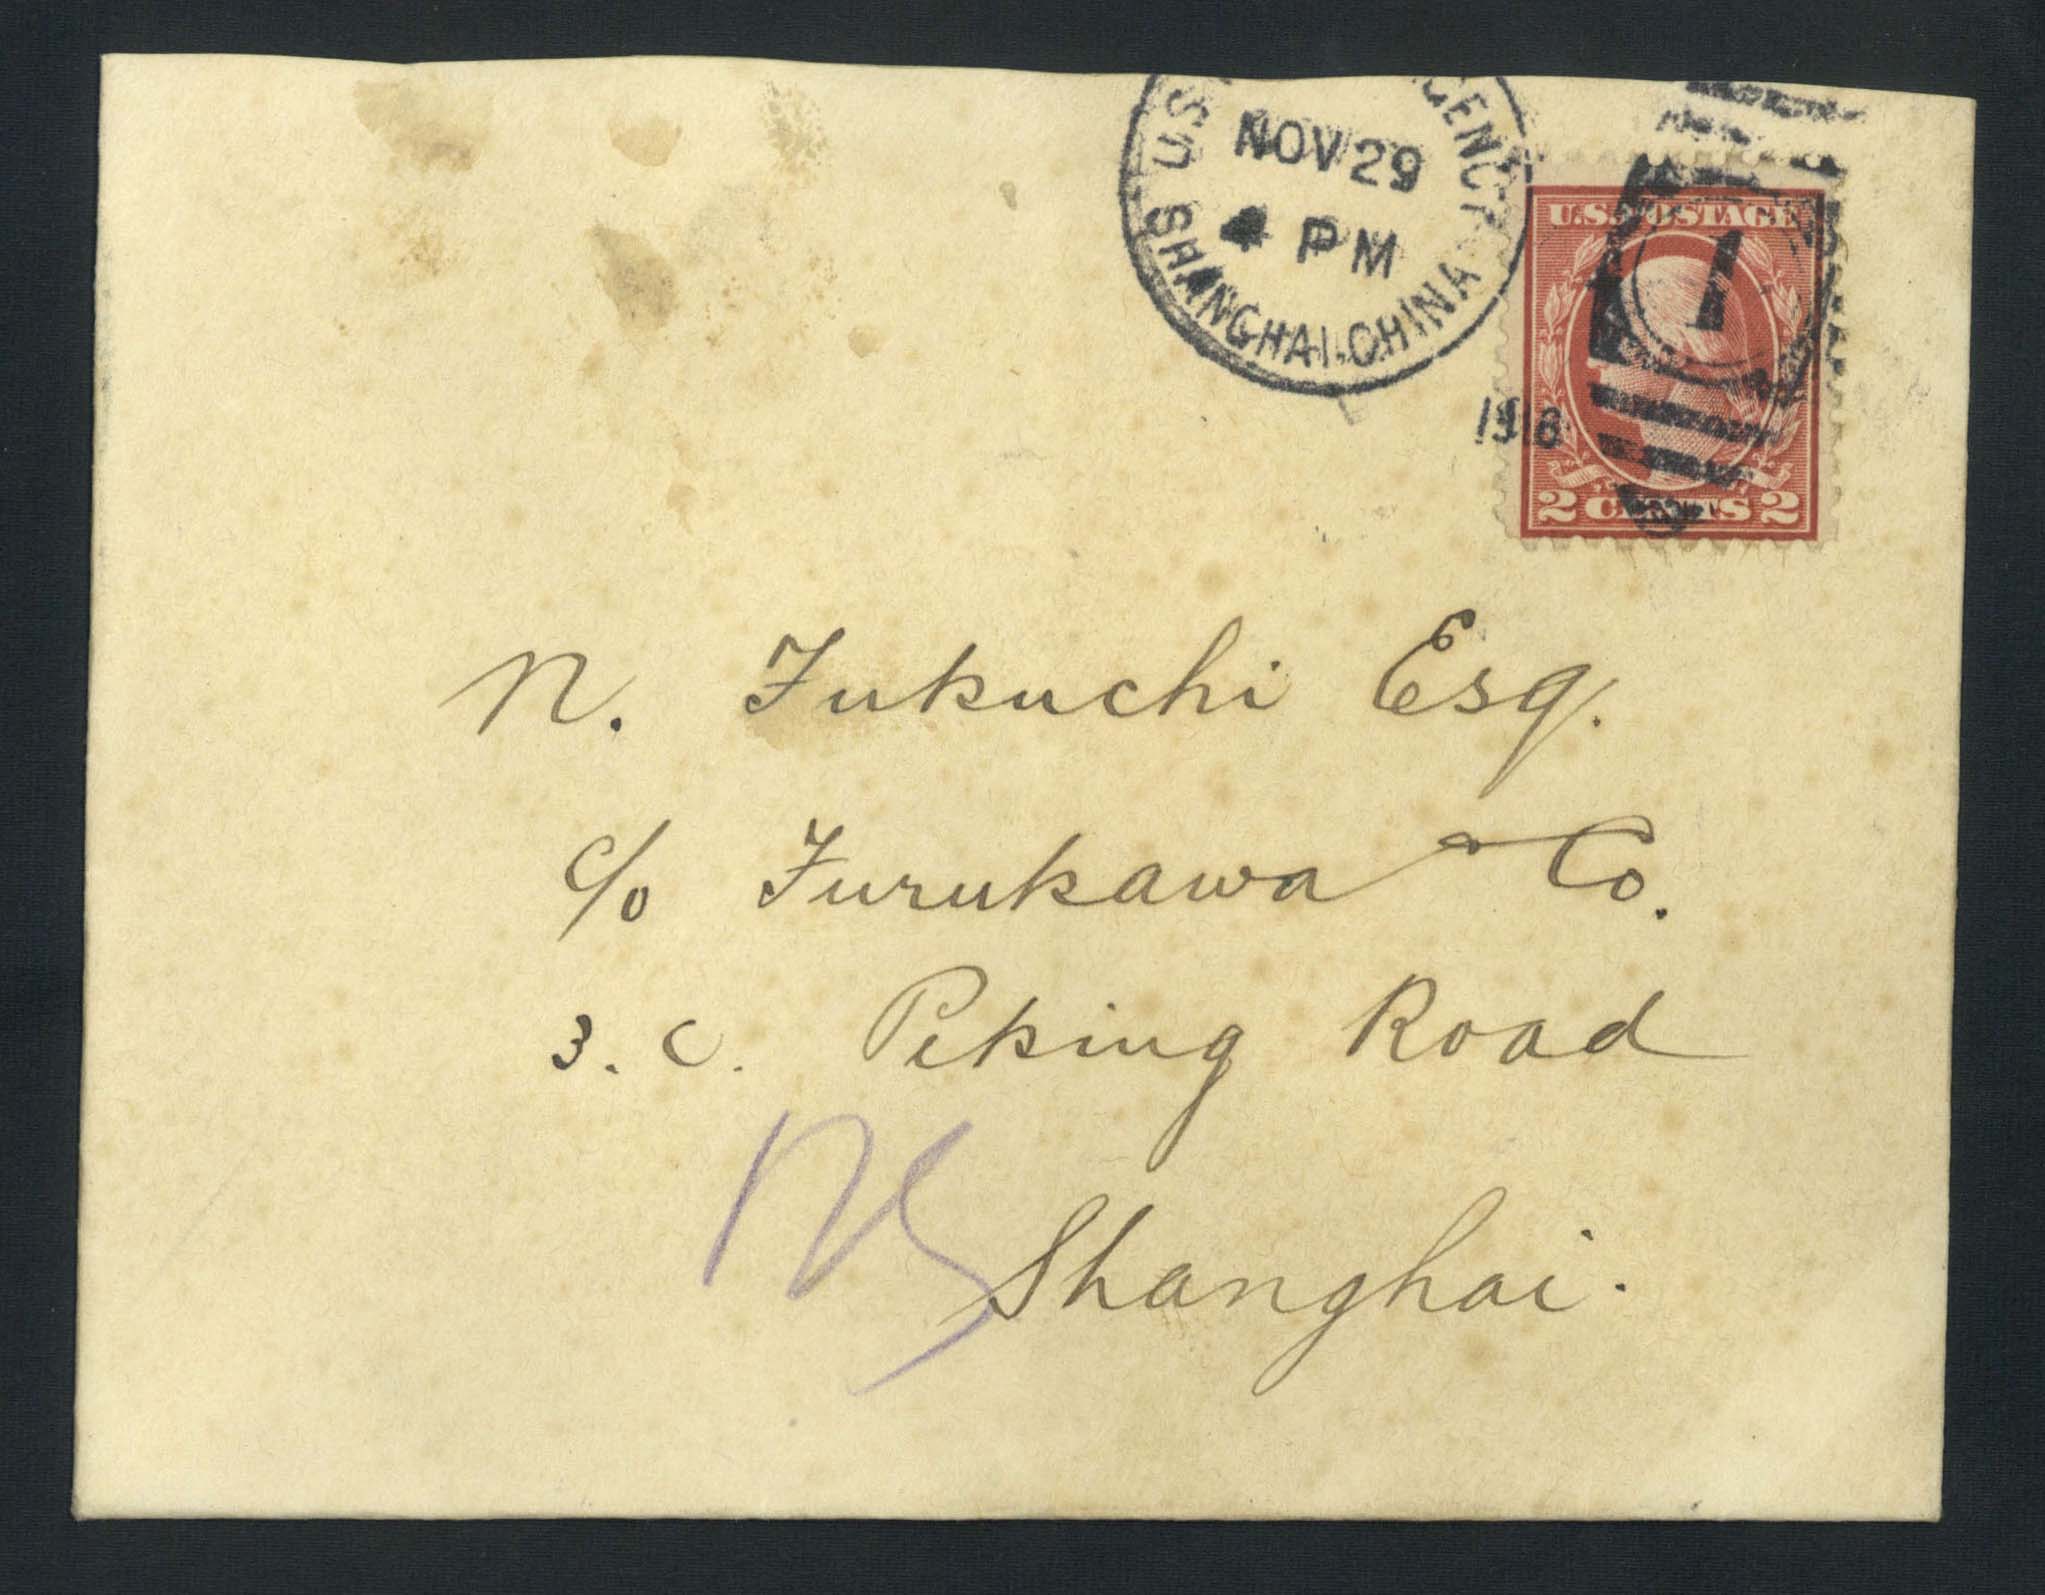 U.S. GENCY
NOV 29
4 PM
SHANGHAI.CHINA
1918
U.S. POSTAGE
1
2 CENTS 2
N. Fukuchi Esq.
c/o Furukawa & Co.
3. C. Peking Road
Shanghai.